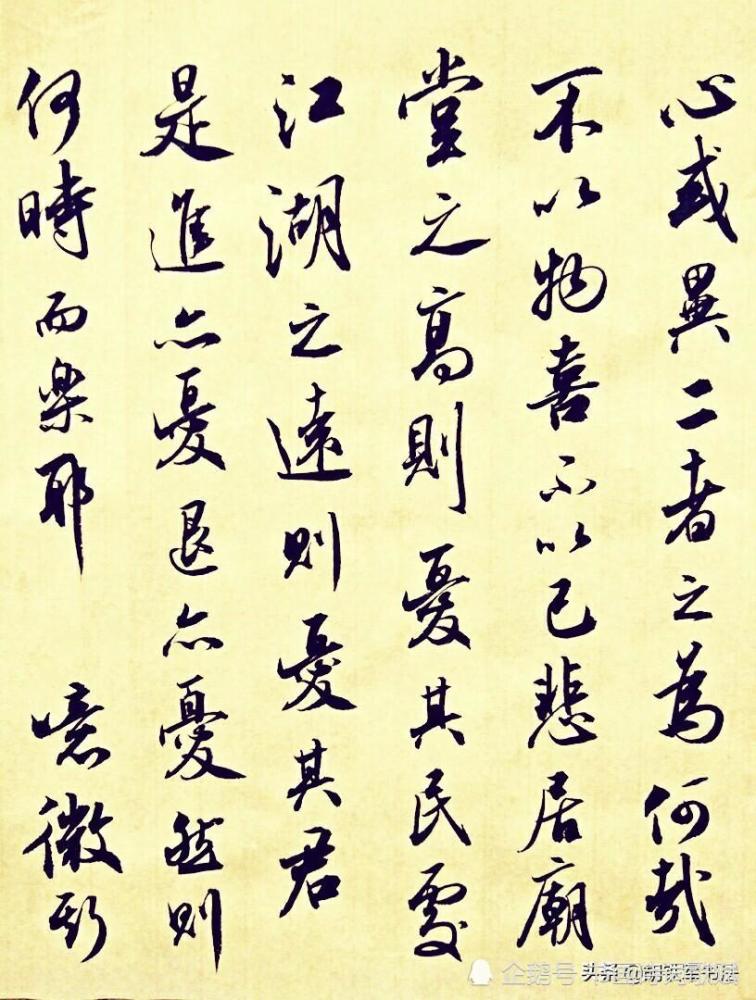 心或異二者之為何哉
不以物喜不以己悲居廟
堂之高則憂其民處
江湖之遠則憂其君
是進亦憂退亦憂然則
何時而楽耶 噫微斯
企鹅号
头条@胡铁军书法